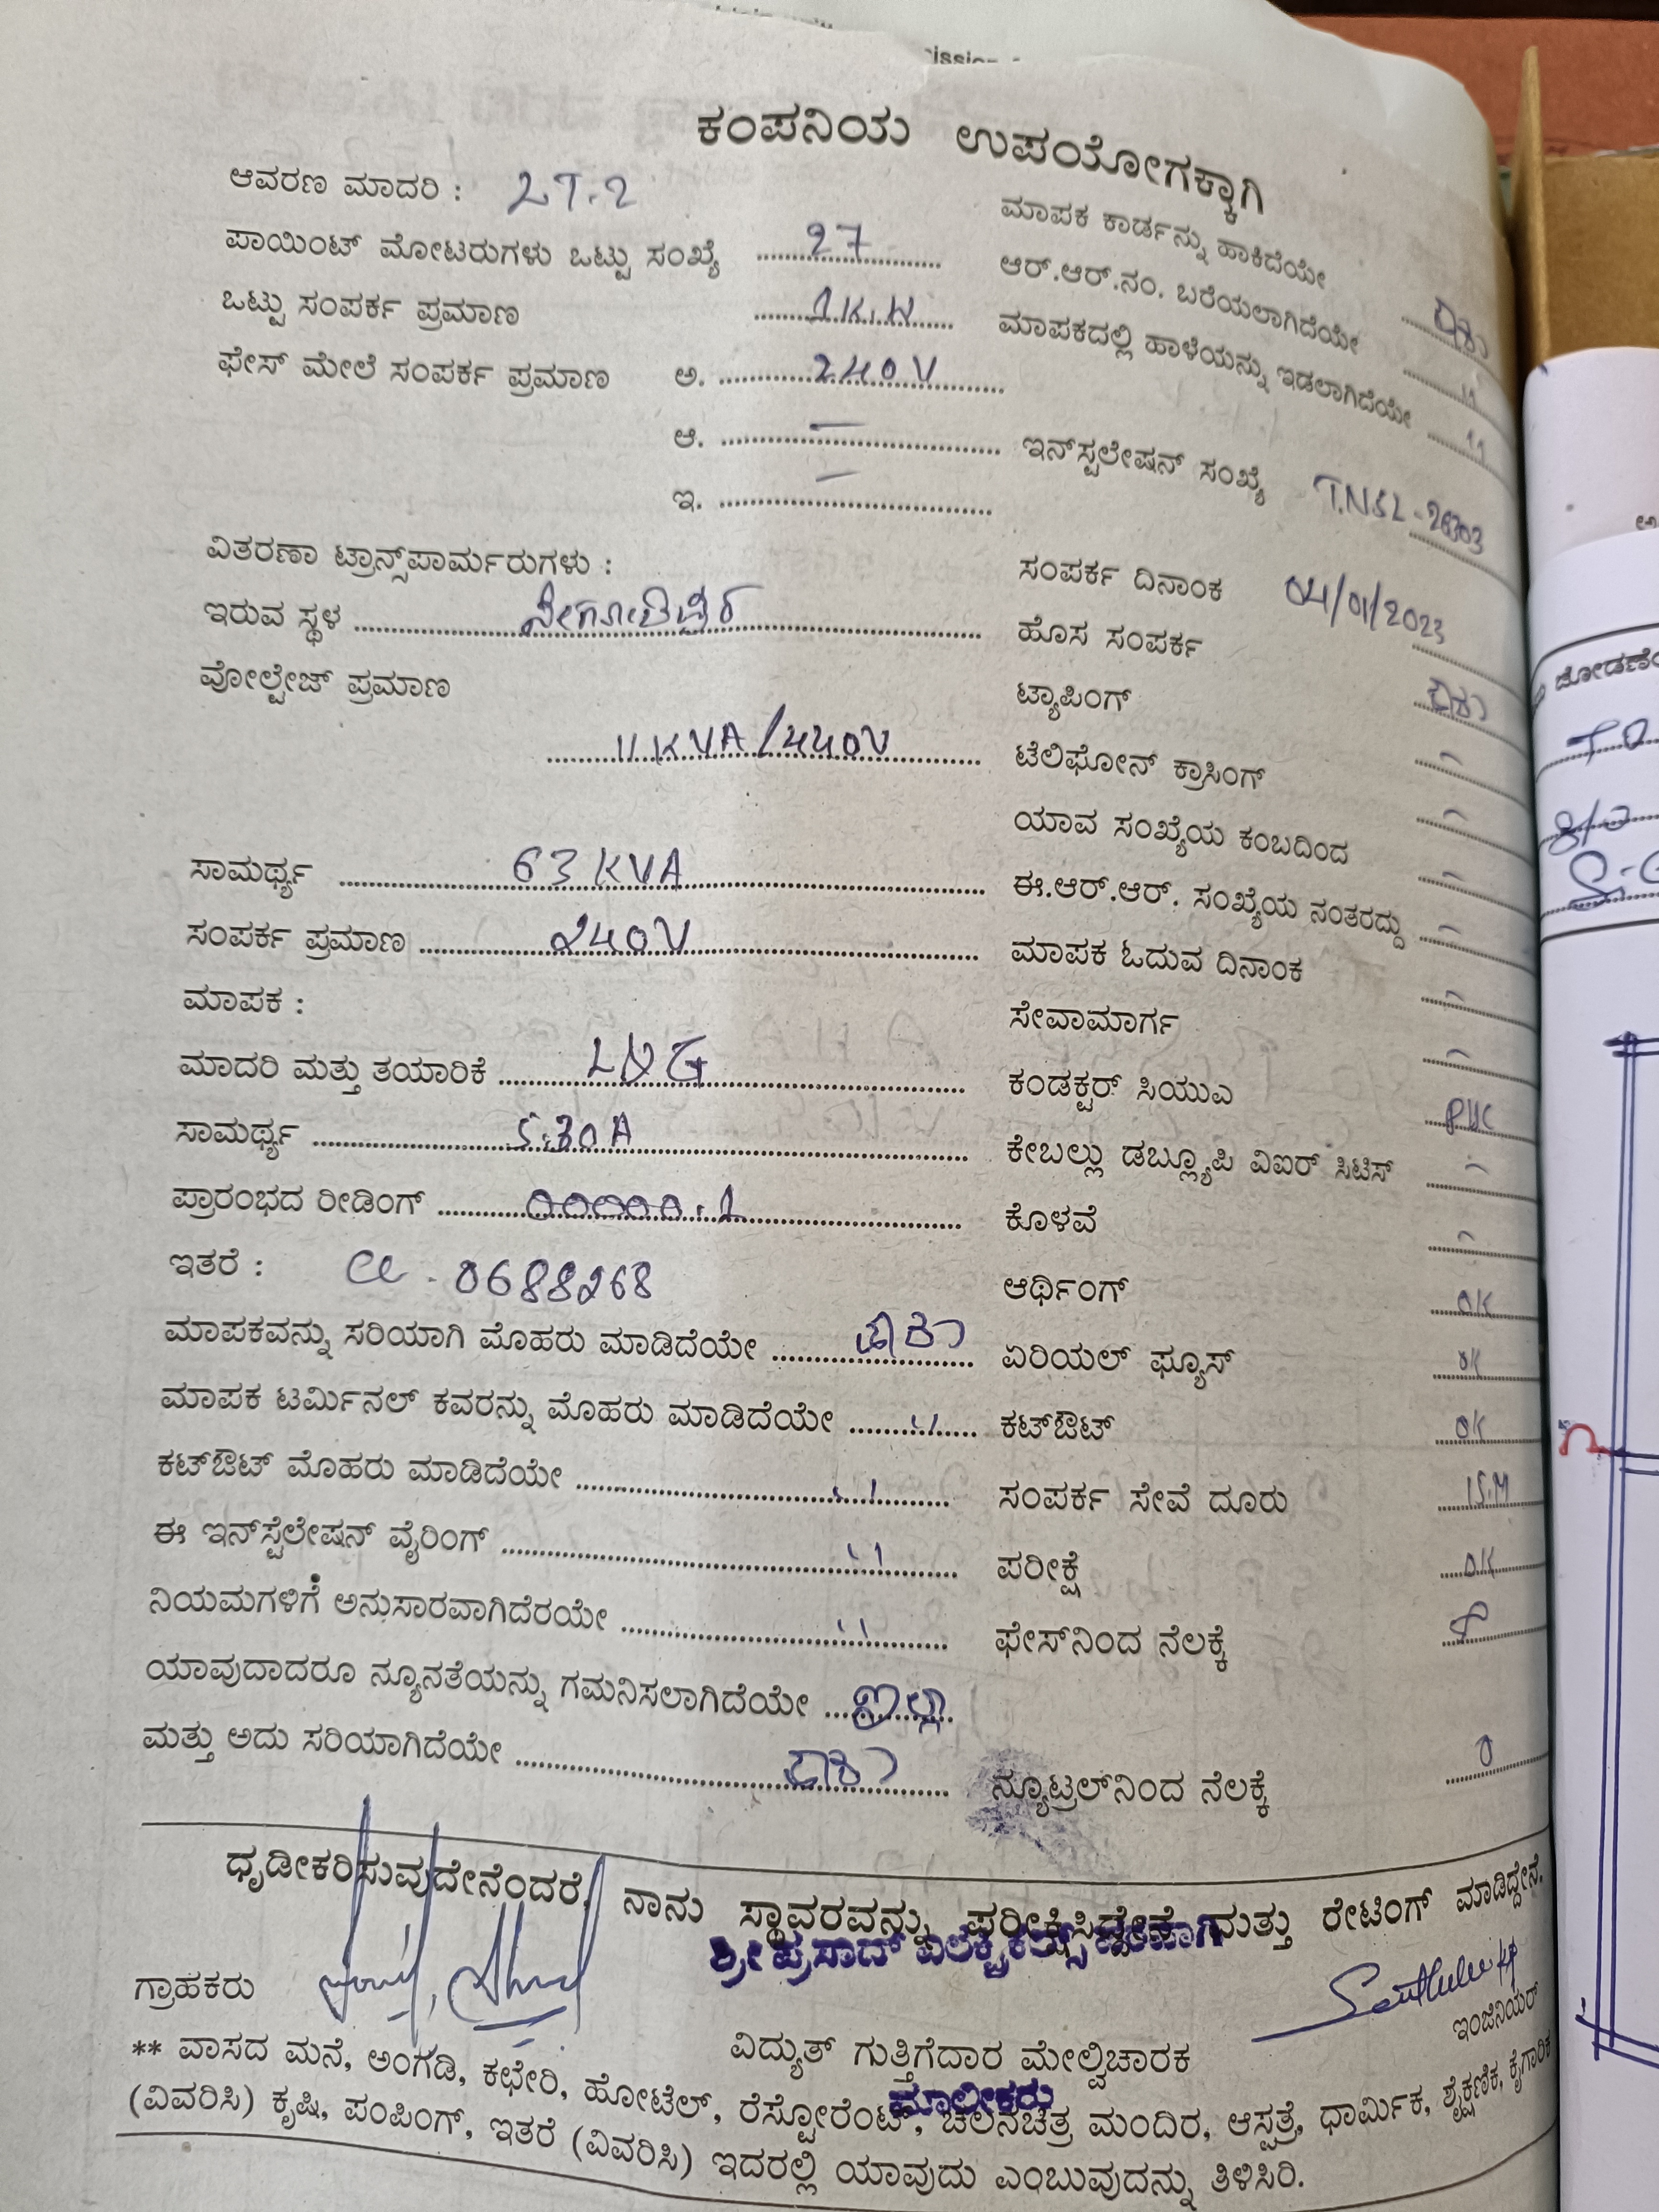 ಕಂಪನಿಯ ಉಪಯೋಗಕ್ಕಾಗಿ
ಆವರಣ ಮಾದರಿ : LT.2
ಪಾಯಿಂಟ್ ಮೋಟರುಗಳು ಒಟ್ಟು ಸಂಖ್ಯೆ 27
ಒಟ್ಟು ಸಂಪರ್ಕ ಪ್ರಮಾಣ 1K.W
ಫೇಸ್ ಮೇಲೆ ಸಂಪರ್ಕ ಪ್ರಮಾಣ ಅ. 240V
ಆ. —
ಇ. —
ವಿತರಣಾ ಟ್ರಾನ್ಸ್‌ಪಾರ್ಮರುಗಳು :
ಇರುವ ಸ್ಥಳ
ವೋಲ್ಟೇಜ್ ಪ್ರಮಾಣ
11KVA/440V
ಸಾಮರ್ಥ್ಯ 63 KVA
ಸಂಪರ್ಕ ಪ್ರಮಾಣ 240V
ಮಾಪಕ :
ಮಾದರಿ ಮತ್ತು ತಯಾರಿಕೆ L&G
ಸಾಮರ್ಥ್ಯ 5-30A
ಪ್ರಾರಂಭದ ರೀಡಿಂಗ್ 00000.1
ಇತರೆ : 0688268
ಮಾಪಕವನ್ನು ಸರಿಯಾಗಿ ಮೊಹರು ಮಾಡಿದೆಯೇ ಹೌದು
ಮಾಪಕ ಟರ್ಮಿನಲ್ ಕವರನ್ನು ಮೊಹರು ಮಾಡಿದೆಯೇ "
ಕಟ್‌ಔಟ್ ಮೊಹರು ಮಾಡಿದೆಯೇ "
ಈ ಇನ್‌ಸ್ಟೆಲೇಷನ್ ವೈರಿಂಗ್ "
ನಿಯಮಗಳಿಗೆ ಅನುಸಾರವಾಗಿದೆರಯೇ "
ಯಾವುದಾದರೂ ನ್ಯೂನತೆಯನ್ನು ಗಮನಿಸಲಾಗಿದೆಯೇ ಇಲ್ಲ
ಮತ್ತು ಅದು ಸರಿಯಾಗಿದೆಯೇ ಹೌದು
ಮಾಪಕ ಕಾರ್ಡನ್ನು ಹಾಕಿದೆಯೇ ಹೌದು
ಆರ್.ಆರ್.ನಂ. ಬರೆಯಲಾಗಿದೆಯೇ "
ಮಾಪಕದಲ್ಲಿ ಹಾಳೆಯನ್ನು ಇಡಲಾಗಿದೆಯೇ "
ಇನ್‌ಸ್ಟಲೇಷನ್ ಸಂಖ್ಯೆ
ಸಂಪರ್ಕ ದಿನಾಂಕ 04/01/2023
ಹೊಸ ಸಂಪರ್ಕ ಹೌದು
ಟ್ಯಾಪಿಂಗ್ —
ಟೆಲಿಫೋನ್ ಕ್ರಾಸಿಂಗ್ —
ಯಾವ ಸಂಖ್ಯೆಯ ಕಂಬದಿಂದ —
ಈ.ಆರ್.ಆರ್. ಸಂಖ್ಯೆಯ ನಂತರದ್ದು —
ಮಾಪಕ ಓದುವ ದಿನಾಂಕ —
ಸೇವಾಮಾರ್ಗ —
ಕಂಡಕ್ಟರ್ ಸಿಯುಎ PVC
ಕೇಬಲ್ಲು ಡಬ್ಲ್ಯೂಪಿ ವಿಐರ್ ಸಿಟಿಸ್ —
ಕೊಳವೆ —
ಆರ್ಥಿಂಗ್ OK
ಏರಿಯಲ್ ಫ್ಯೂಸ್ OK
ಕಟ್‌ಔಟ್ OK
ಸಂಪರ್ಕ ಸೇವೆ ದೂರು 15.M
ಪರೀಕ್ಷೆ OK
ಫೇಸ್‌ನಿಂದ ನೆಲಕ್ಕೆ
ನ್ಯೂಟ್ರಲ್‌ನಿಂದ ನೆಲಕ್ಕೆ 0
ಧೃಡೀಕರಿಸುವುದೇನೆಂದರೆ, ನಾನು ಸ್ಥಾವರವನ್ನು ಪರೀಕ್ಷಿಸಿದ್ದೇನೆ ಮತ್ತು ರೇಟಿಂಗ್ ಮಾಡಿದ್ದೇನೆ.
ಶ್ರೀ ಪ್ರಸಾದ್ ಎಲೆಕ್ಟ್ರಿಕಲ್ಸ್
ಗ್ರಾಹಕರು
ಇಂಜಿನಿಯರ್
ವಿದ್ಯುತ್ ಗುತ್ತಿಗೆದಾರ ಮೇಲ್ವಿಚಾರಕ
ಮಾಲೀಕರು
** ವಾಸದ ಮನೆ, ಅಂಗಡಿ, ಕಛೇರಿ, ಹೋಟೆಲ್, ರೆಸ್ಟೋರೆಂಟ್, ಚಲನಚಿತ್ರ ಮಂದಿರ, ಆಸ್ಪತ್ರೆ, ಧಾರ್ಮಿಕ, ಶೈಕ್ಷಣಿಕ, ಕೈಗಾರಿಕೆ
(ವಿವರಿಸಿ) ಕೃಷಿ, ಪಂಪಿಂಗ್, ಇತರೆ (ವಿವರಿಸಿ) ಇದರಲ್ಲಿ ಯಾವುದು ಎಂಬುವುದನ್ನು ತಿಳಿಸಿರಿ.